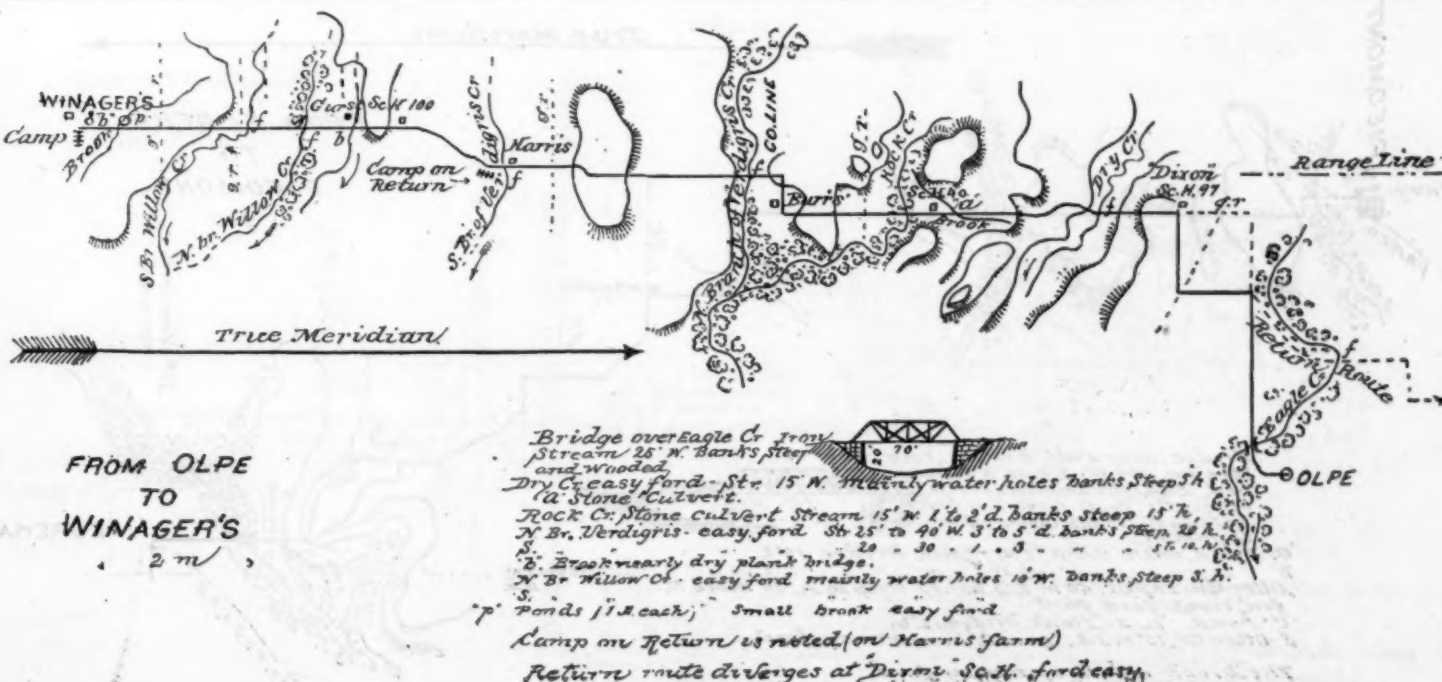 WINAGER'S
b p
Camp
Brook
S. Br. Willow Cr
g.r.
N. br. Willow Cr
f
f
b
Sc.H 100
Camp on
Return
Harris
f
S. Br of Verdigris Cr
g.r.
N. Branch of Verdigris Cr.
CO. LINE
f
Burrs
g.r.
Rock Cr
a
Dry Cr.
f
Dixon
Sc.H. 97
g.r
Range Line
Return Route
f
Eagle Cr
OLPE
True Meridian
FROM OLPE
TO
WINAGER'S
2 m
20
70
Bridge over Eagle Cr Iron
Stream 25' W. Banks, steep
and wooded
Dry Cr, easy ford - Str. 15' W. mainly water holes banks, steep 5 h
"a" Stone Culvert.
Rock Cr. Stone Culvert Stream 15' w. 1' to 2' d. banks steep 15' h.
N Br. Verdigris - easy ford Str 25' to 40' W. 3' to 5' d. banks steep 20' h.
S. " " " 20 30 1 3
"b" Brook nearly dry plank bridge.
N Br Willow Cr. easy ford mainly water holes 10' W. banks, steep 5. h.
S. "
"p" Ponds 1 A. each; Small brook easy ford
Camp on Return is noted (on Harris farm)
Return route diverges at Dixon Sc.H. ford easy.